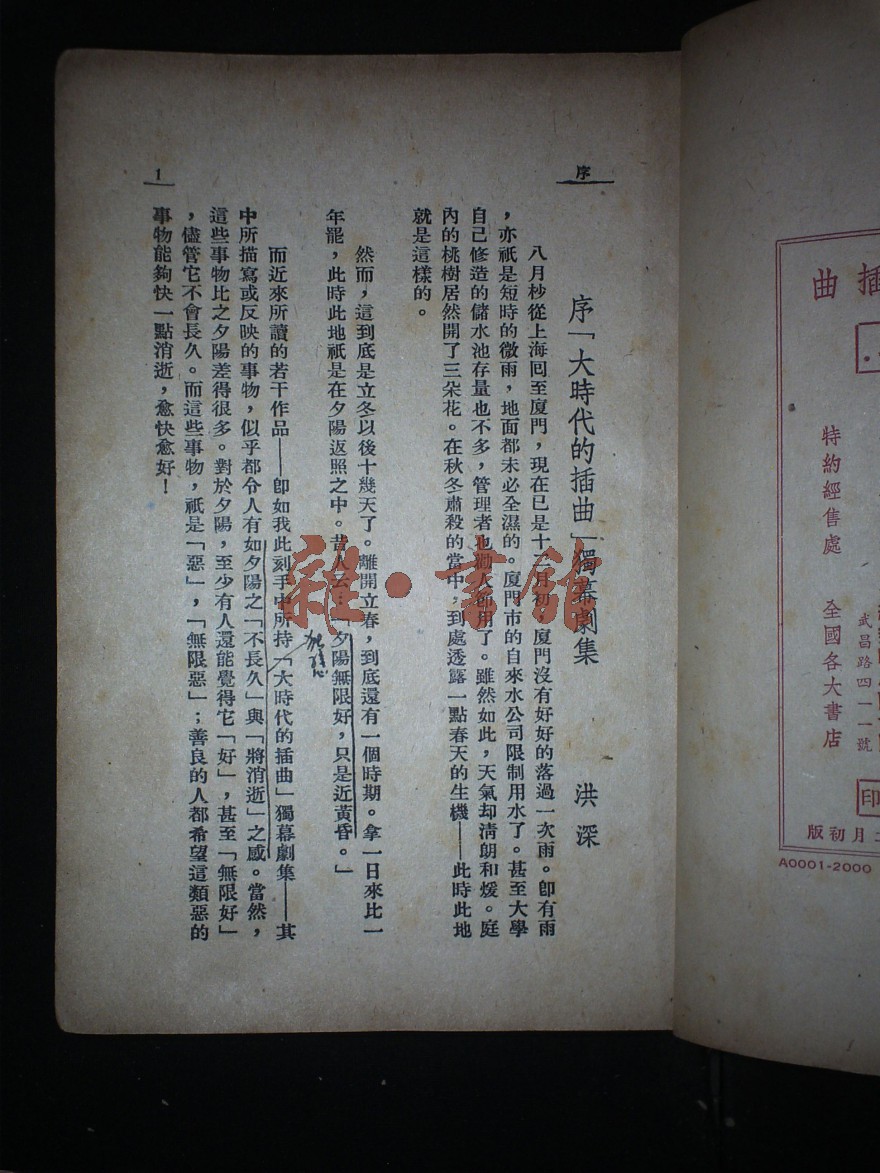 序
序「大時代的插曲」獨幕劇集
洪深
八月杪從上海回至廈門，現在已是十二月初，廈門沒有好好的落過一次雨。卽有雨
，亦祇是短時的微雨，地面都未必全濕的。廈門市的自來水公司限制用水了。甚至大學
自己修造的儲水池存量也不多，管理者也勸人節用了。雖然如此，天氣却淸朗和煖。庭
內的桃樹居然開了三朵花。在秋冬肅殺的當中，到處透露一點春天的生機——此時此地
就是這樣的。
然而，這到底是立冬以後十幾天了。離開立春，到底還有一個時期。拿一日來比一
年罷，此時此地祇是在夕陽返照之中。昔人云：「夕陽無限好，只是近黃昏。」
而近來所讀的若干作品——卽如我此刻手中所持「大時代的插曲」獨幕劇集——其
中所描寫或反映的事物，似乎都令人有如夕陽之「不長久」與「將消逝」之感。當然，
這些事物比之夕陽差得很多。對於夕陽，至少有人還能覺得它「好」，甚至「無限好」
，儘管它不會長久。而這些事物，祇是「惡」，「無限惡」；善良的人都希望這類惡的
事物能夠快一點消逝，愈快愈好！
1
插曲
特約經售處
全國各大書店
武昌路四一一號
印
月初版
A0001-2000
雜·書館